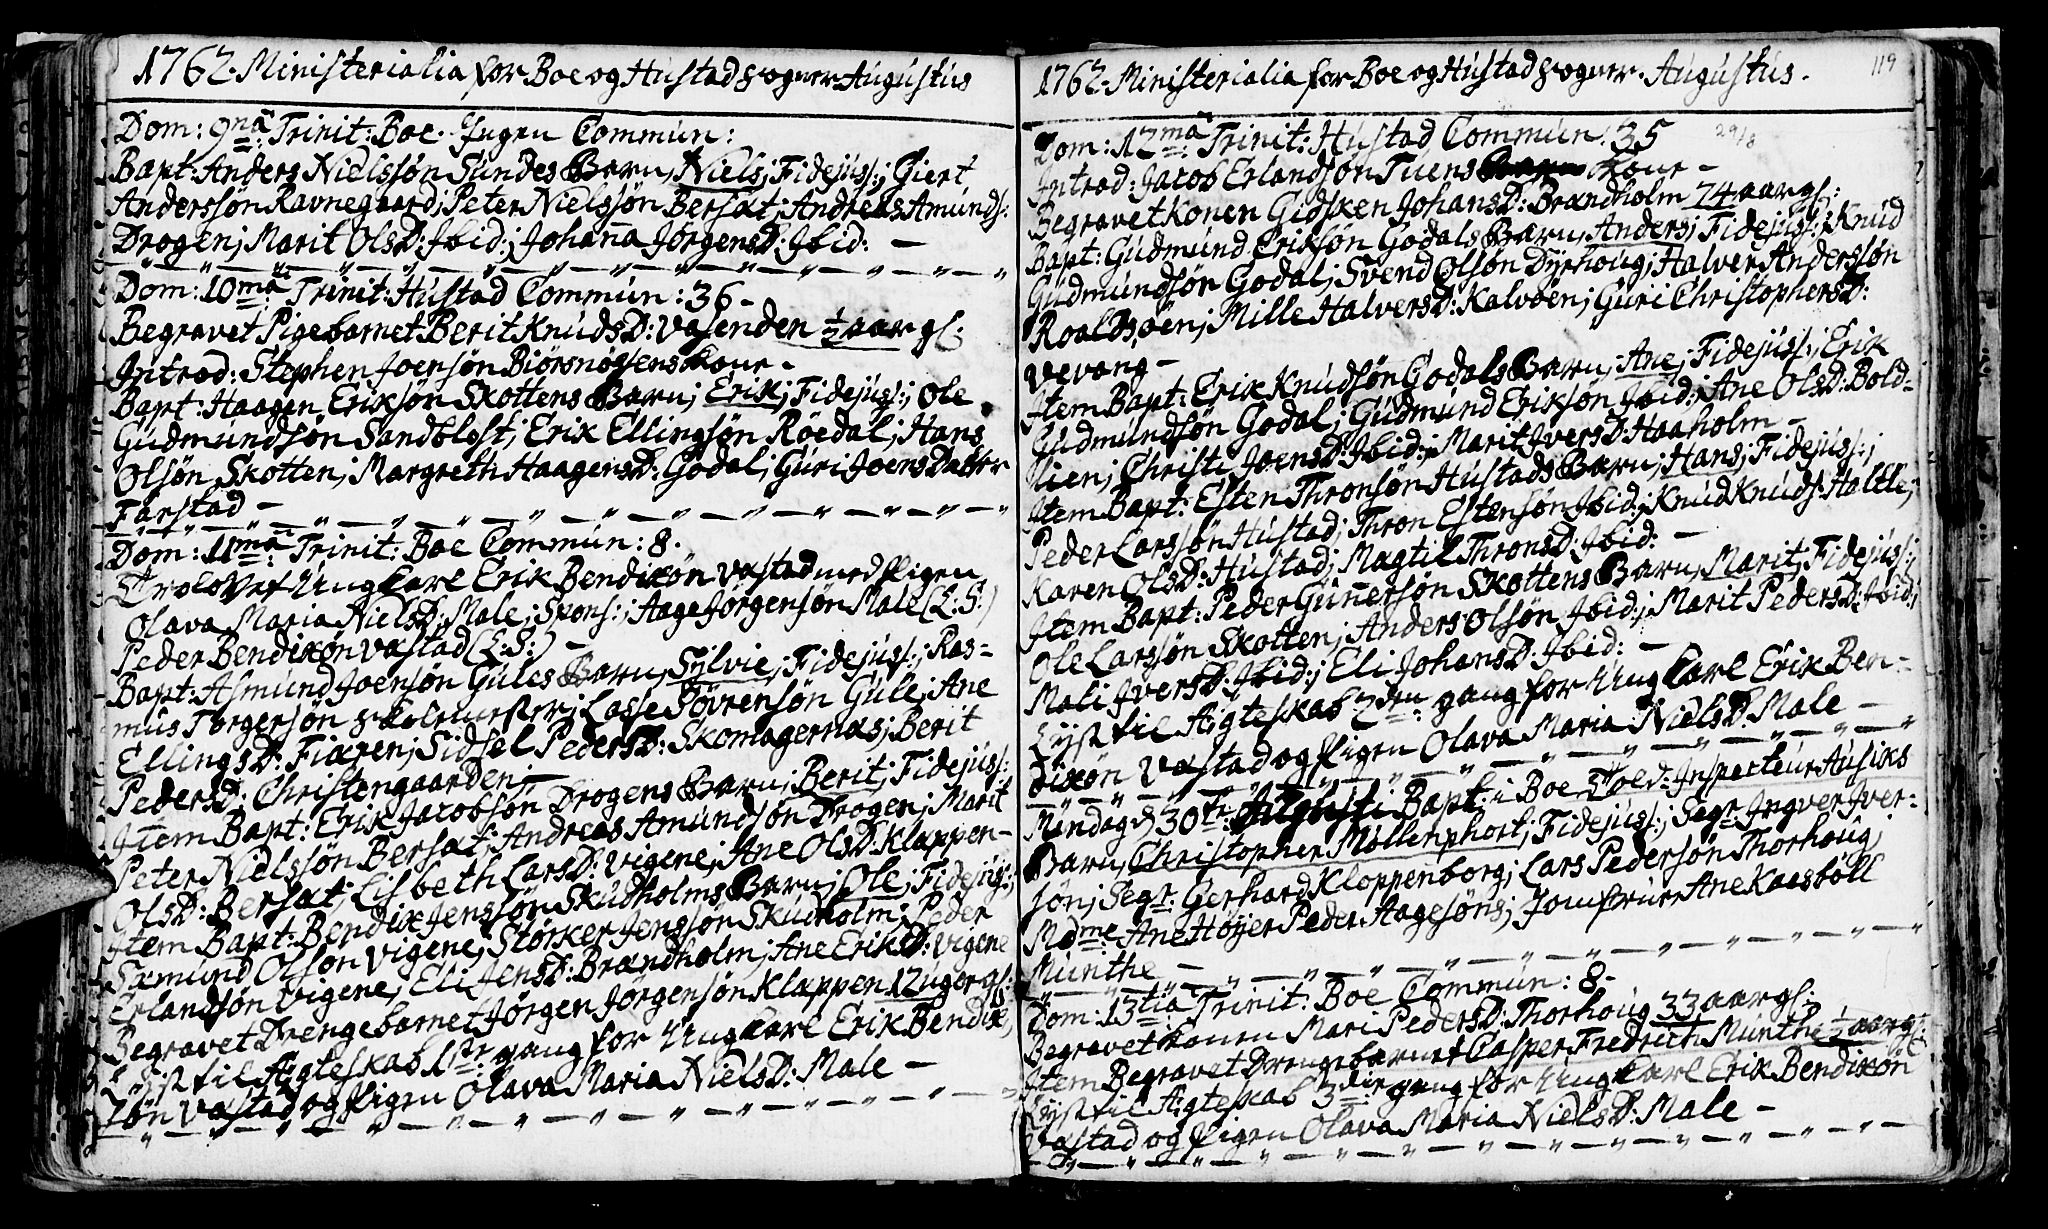 1762. Ministerialia for Boe og Hustad Sogner Augustus
Dom: 9na Trinit: Boe. Ingen Commun:
Bapt: Anders Nielssøn Sundes Barn, Niels; Fidejuss:; Giert
Anderssøn Ravnegaard; Peter Nielssøn Bersæt; Andreas Amunds:
Drogen; Marit OlsD: Ibid:; Johanna JørgensD: Ibid: —
Dom: 10ma Trinit: Hustad Commun: 36 -
Begravet Pigebarnet Berit KnudsD: Vasenden ½ aar gl:
Introd: Stephen Joensøn Biørsnøsens Kone -
Bapt: Haagen Eriksøn Skottens Barn; Erik; Fidejuss:; Ole
Gudmundsøn Sandblost; Erik Ellingsøn Röedal; Hans
Olsøn Skotten, Margreth HaagensD: Godal; Guri Joens Datter
Farstad —
Dom: 11ma Trinit: Boe Commun: 8.
Trolovet Ung Karl Erik Bendixøn Vastad med Pigen
Olava Maria NielsD: Male; Spons:; Aage Jørgensøn Male (L:S:)
Peder Bendixøn Vastad (L:S:) —
Bapt: Asmund Joensøn Gules Barn, Sylvie, Fidejuss:; Ras-
mus Torgersøn Skolemester; Lasse Sørensøn Gule; Ane
EllingsD: Fiæren; Sidsel PedersD: Skomagernæs; Berit
PedersD: Christengaarden —
Item Bapt: Erik Jacobsøn Drogens Barn; Berit; Fidejuss:
Peter Nielssøn Bersæt; Andreas Amundsøn Drogen; Marit
OlsD: Bersæt; Lisbeth LarsD: Vigene; Ane OlsD: Klappen-
Item Bapt: Bendix Jenssøn Skudholms Barn; Ole; Fidejuss:;
Sæmund Olsøn Vigene, Størker Jenssøn Skudholm; Peder
Erlandsøn Vigene; Eli JensD: Brændholm; Ane EriksD: Vigene
Begravet Drengebarnet Jørgen Jørgensøn Klappen 12 uger gl:
Lyst til Ægteskab 1ste gang for Ung Karl Erik Bendix,
søn Vastad og Pigen Olava Maria NielsD: Male —
1762. Ministerialia for Boe og Hustad Sogner. Augustus.
119
Dom: 12ma Trinit: Hustad Commun: 35
29/8
Introd: Jacob Erlandsøn Tuens Kone -
Begravet Konen Gidsken JohansD: Brændholm 74 aar gl:
Bapt: Gudmund Eriksøn Godals Barn, Anders; Fidejuss:; Knud
Gudmundsøn Godal; Svend Olsøn Dyrhoug; Halver Anderssøn
Roaldsøen; Mille HalversD: Kalvøen; Guri ChristophersD:
Vevang -
Item Bapt: Erik Knudsøn Godals Barn; Ane; Fidejuss:; Erik
Gudmundsøn Godal; Gudmund Eriksøn Ibid:; Ane OlsD: Bold-
lien; Christi JoensD: Ibid:; Marit IversD: Haaholm —
Item Bapt: Esten Thronsøn Hustads Barn; Hans; Fidejuss:;
Peder Larssøn Hustad; Thron Estensøn Ibid:; Knud Knuds: Haltle;
Karen OlsD: Hustad; Magtil ThronsD: Ibid: —
Item Bapt: Peder Gunnersøn Skottens Barn, Marit; Fidejuss:;
Ole Larssøn Skotten; Anders Olsøn Ibid:; Marit PedersD: Ibid:;
Mali IversD: Ibid:; Eli JohansD: Ibid: —
Lyst til Ægteskab 2den gang for Ung Karl Erik Ben-
dixøn Vastad og Pigen Olava Maria NielsD: Male —
Mandag d 30te Bapt: i Boe Inspecteur Ausiks
Barn, Christopher Møllenphort; Fidejuss:; Segr Ingver Iver-
søn; Segr: Gerhard Kloppenborg; Lars Pedersøn Thorhoug;
Mdme: Ane Høyer Peder Aagesøns; Jomfrue Ane Kaasbøll
Munthe —
Dom: 13tia Trinit: Boe Commun: 8-
Begravet Konen Mari PedersD: Thorhoug 33 aar gl:
Item Begravet Drengebarnet Casper Fredrich Munthe ½ aar gl:
Lyst til Ægteskab 3die gang for Ung Karl Erik Bendixøn
Vastad og Pigen Olava Maria NielsD: Male —